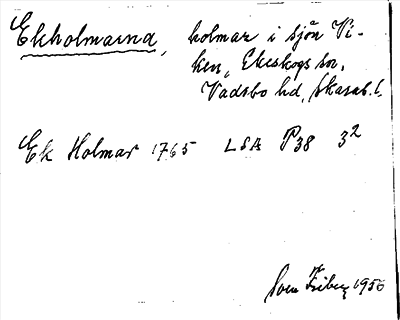 Ekholmarna, holmar i sjön Vi-
ken, Ekeskogs sn,
Vadsbo hd, Skarab. l.
Ek Holmar 1765 LSA P38 3²
Sven Friberg 1956